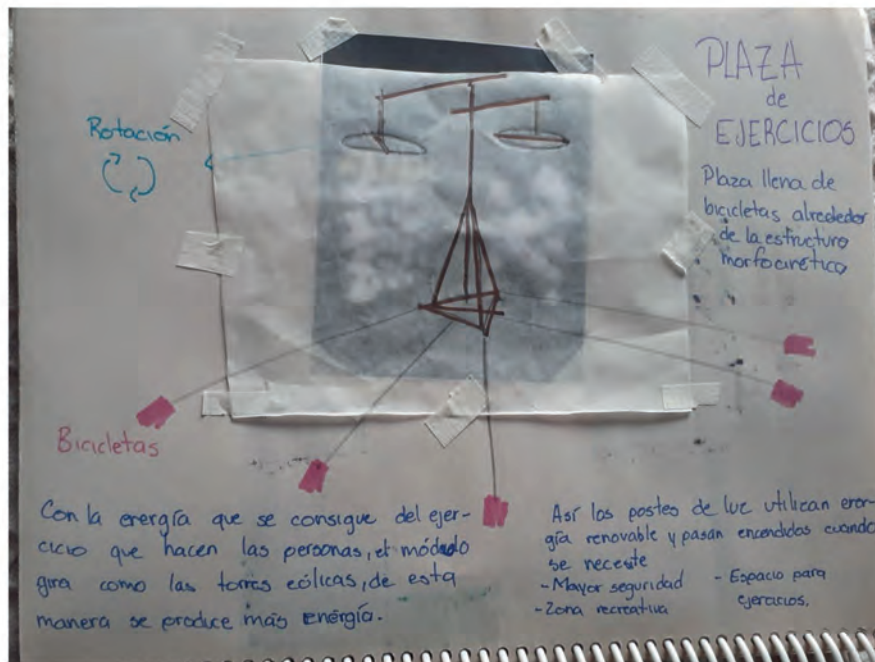 PLAZA
de
EJERCICIOS
Rotación
Plaza llena de
bicicletas alrededor
de la estructura
morfocinética
Bicicletas
Con la energía que se consigue del ejer-
cicio que hacen las personas, el módulo
gira como las torres eólicas, de esta
manera se produce más energía.
Así los postes de luz utilizan ener-
gía renovable y pasan encendidos cuando
se necesite
- Mayor seguridad
- Zona recreativa
- Espacio para
ejercicios.